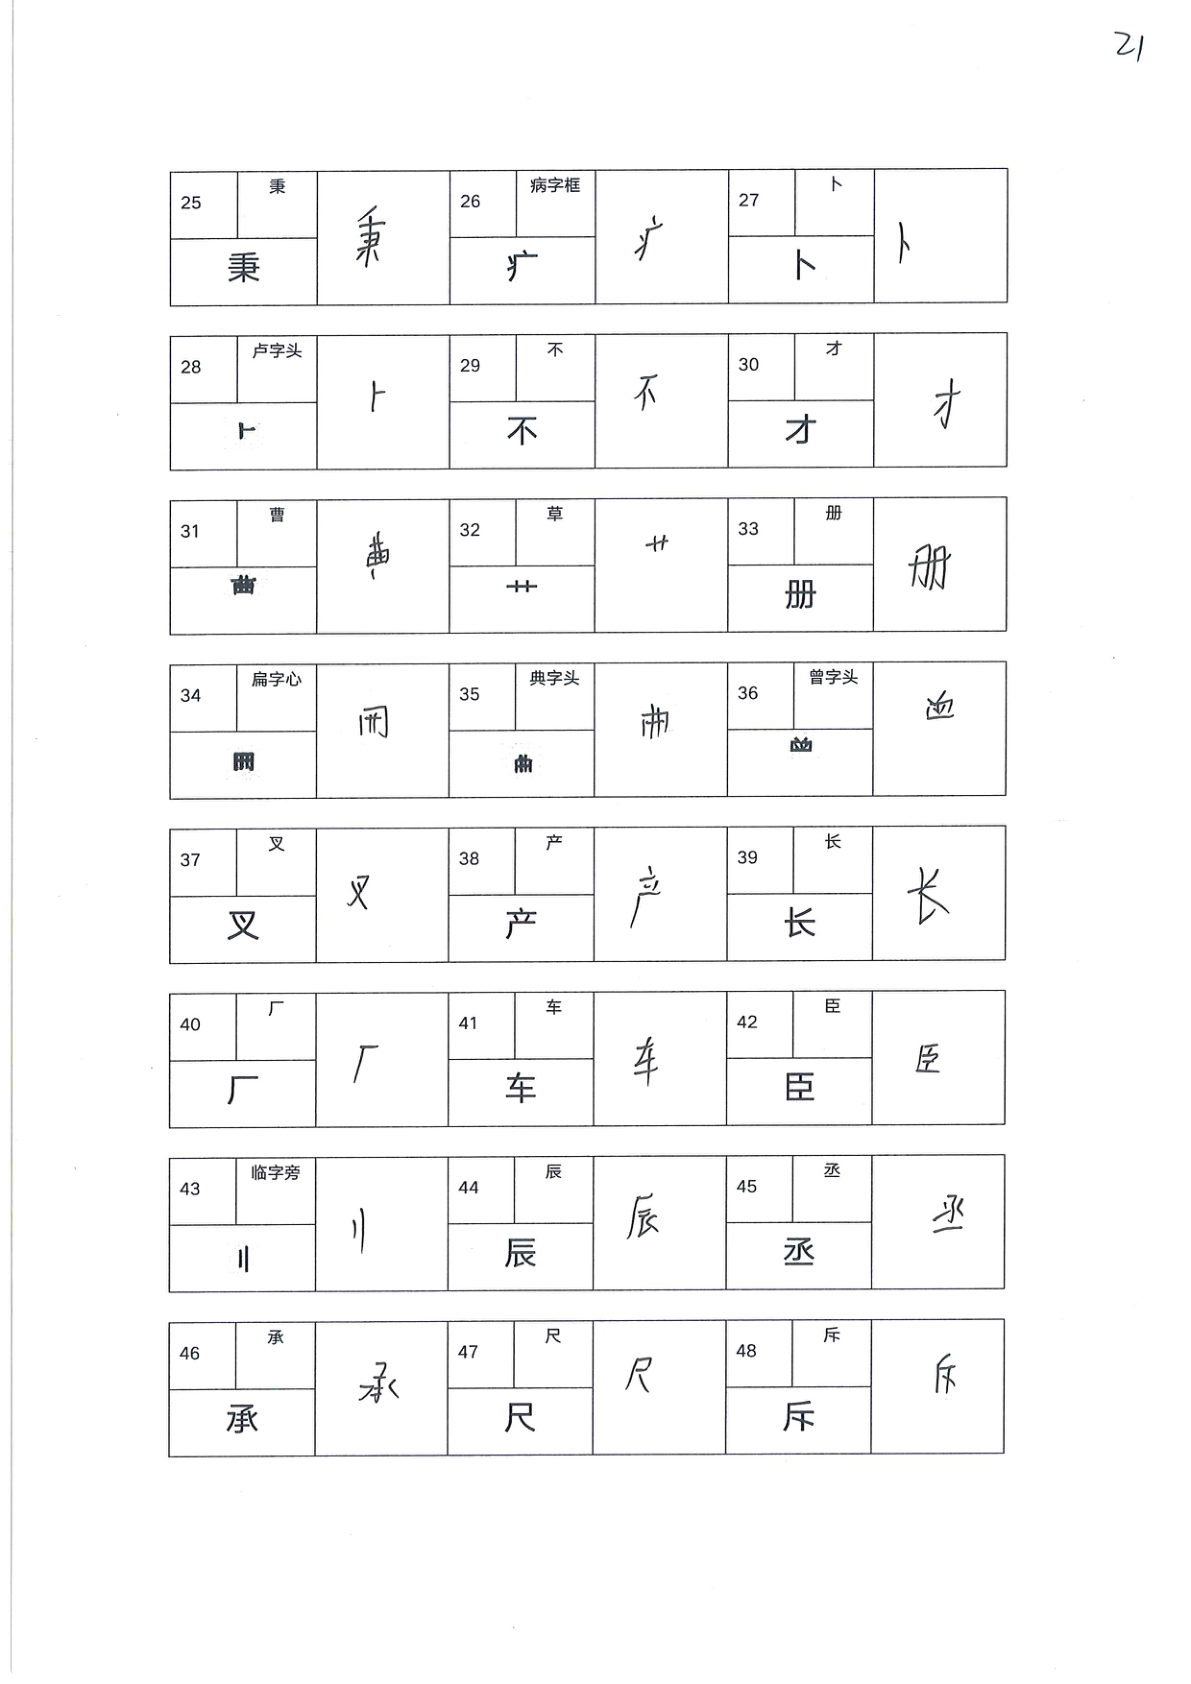 21
25 秉 秉 26 病字框 疒 27 卜 卜
秉 疒 卜
28 卢字头 ⺊ 29 不 不 30 才 才
⺊ 不 才
31 曹 32 草 艹 33 册 册
艹 册
34 扁字心 35 典字头 36 曾字头
37 叉 叉 38 产 产 39 长 长
叉 产 长
40 厂 厂 41 车 车 42 臣 臣
厂 车 臣
43 临字旁 〢 44 辰 辰 45 丞 丞
〢 辰 丞
46 承 承 47 尺 尺 48 斥 斥
承 尺 斥